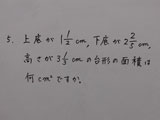 5. 上底が 1 1/2 cm, 下底が 2 2/5 cm,
高さが 3 1/3 cm の台形の面積は
何cm²ですか。